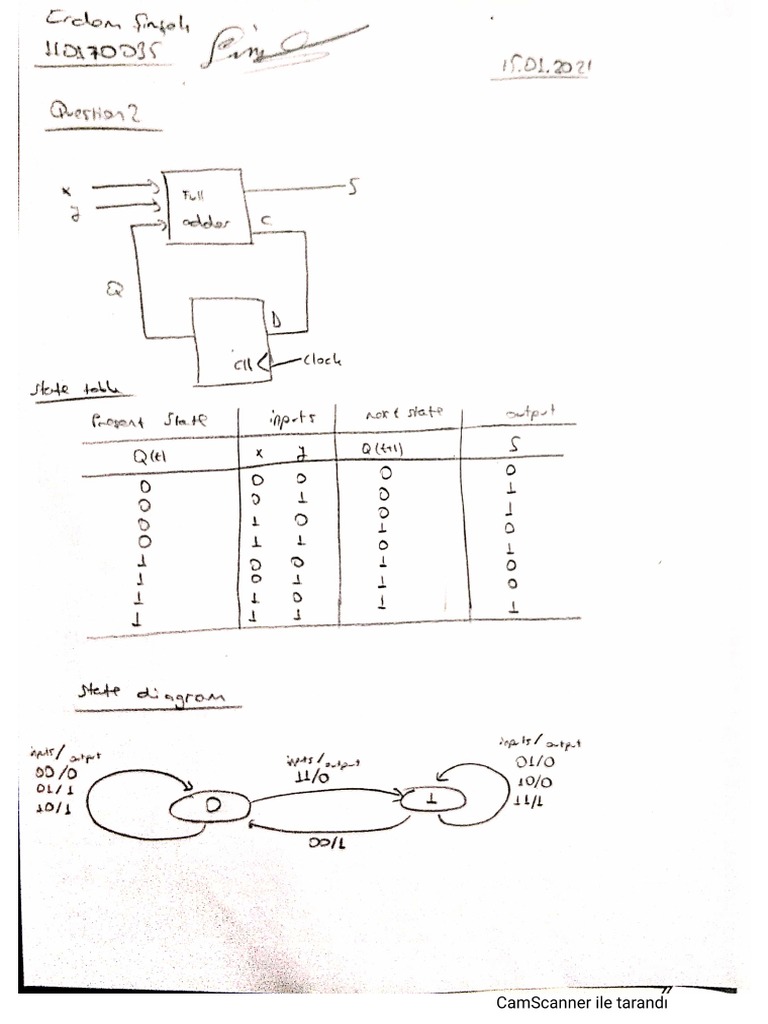 Erdem
110170035
15.01.2021
Question 2
x
y
Full
adder
S
C
Q
D
clk
Clock
State table
Present State inputs next state output
Q(t) x y Q(t+1) S
0 0 0 0 0
0 0 1 0 1
0 1 0 0 1
0 1 1 1 0
1 0 0 0 1
1 0 1 1 0
1 1 0 1 0
1 1 1 1 1
State diagram
inputs/output
00/0
01/1
10/1
0
inputs/output
11/0
00/1
1
inputs/output
01/0
10/0
11/1
CamScanner ile tarandı